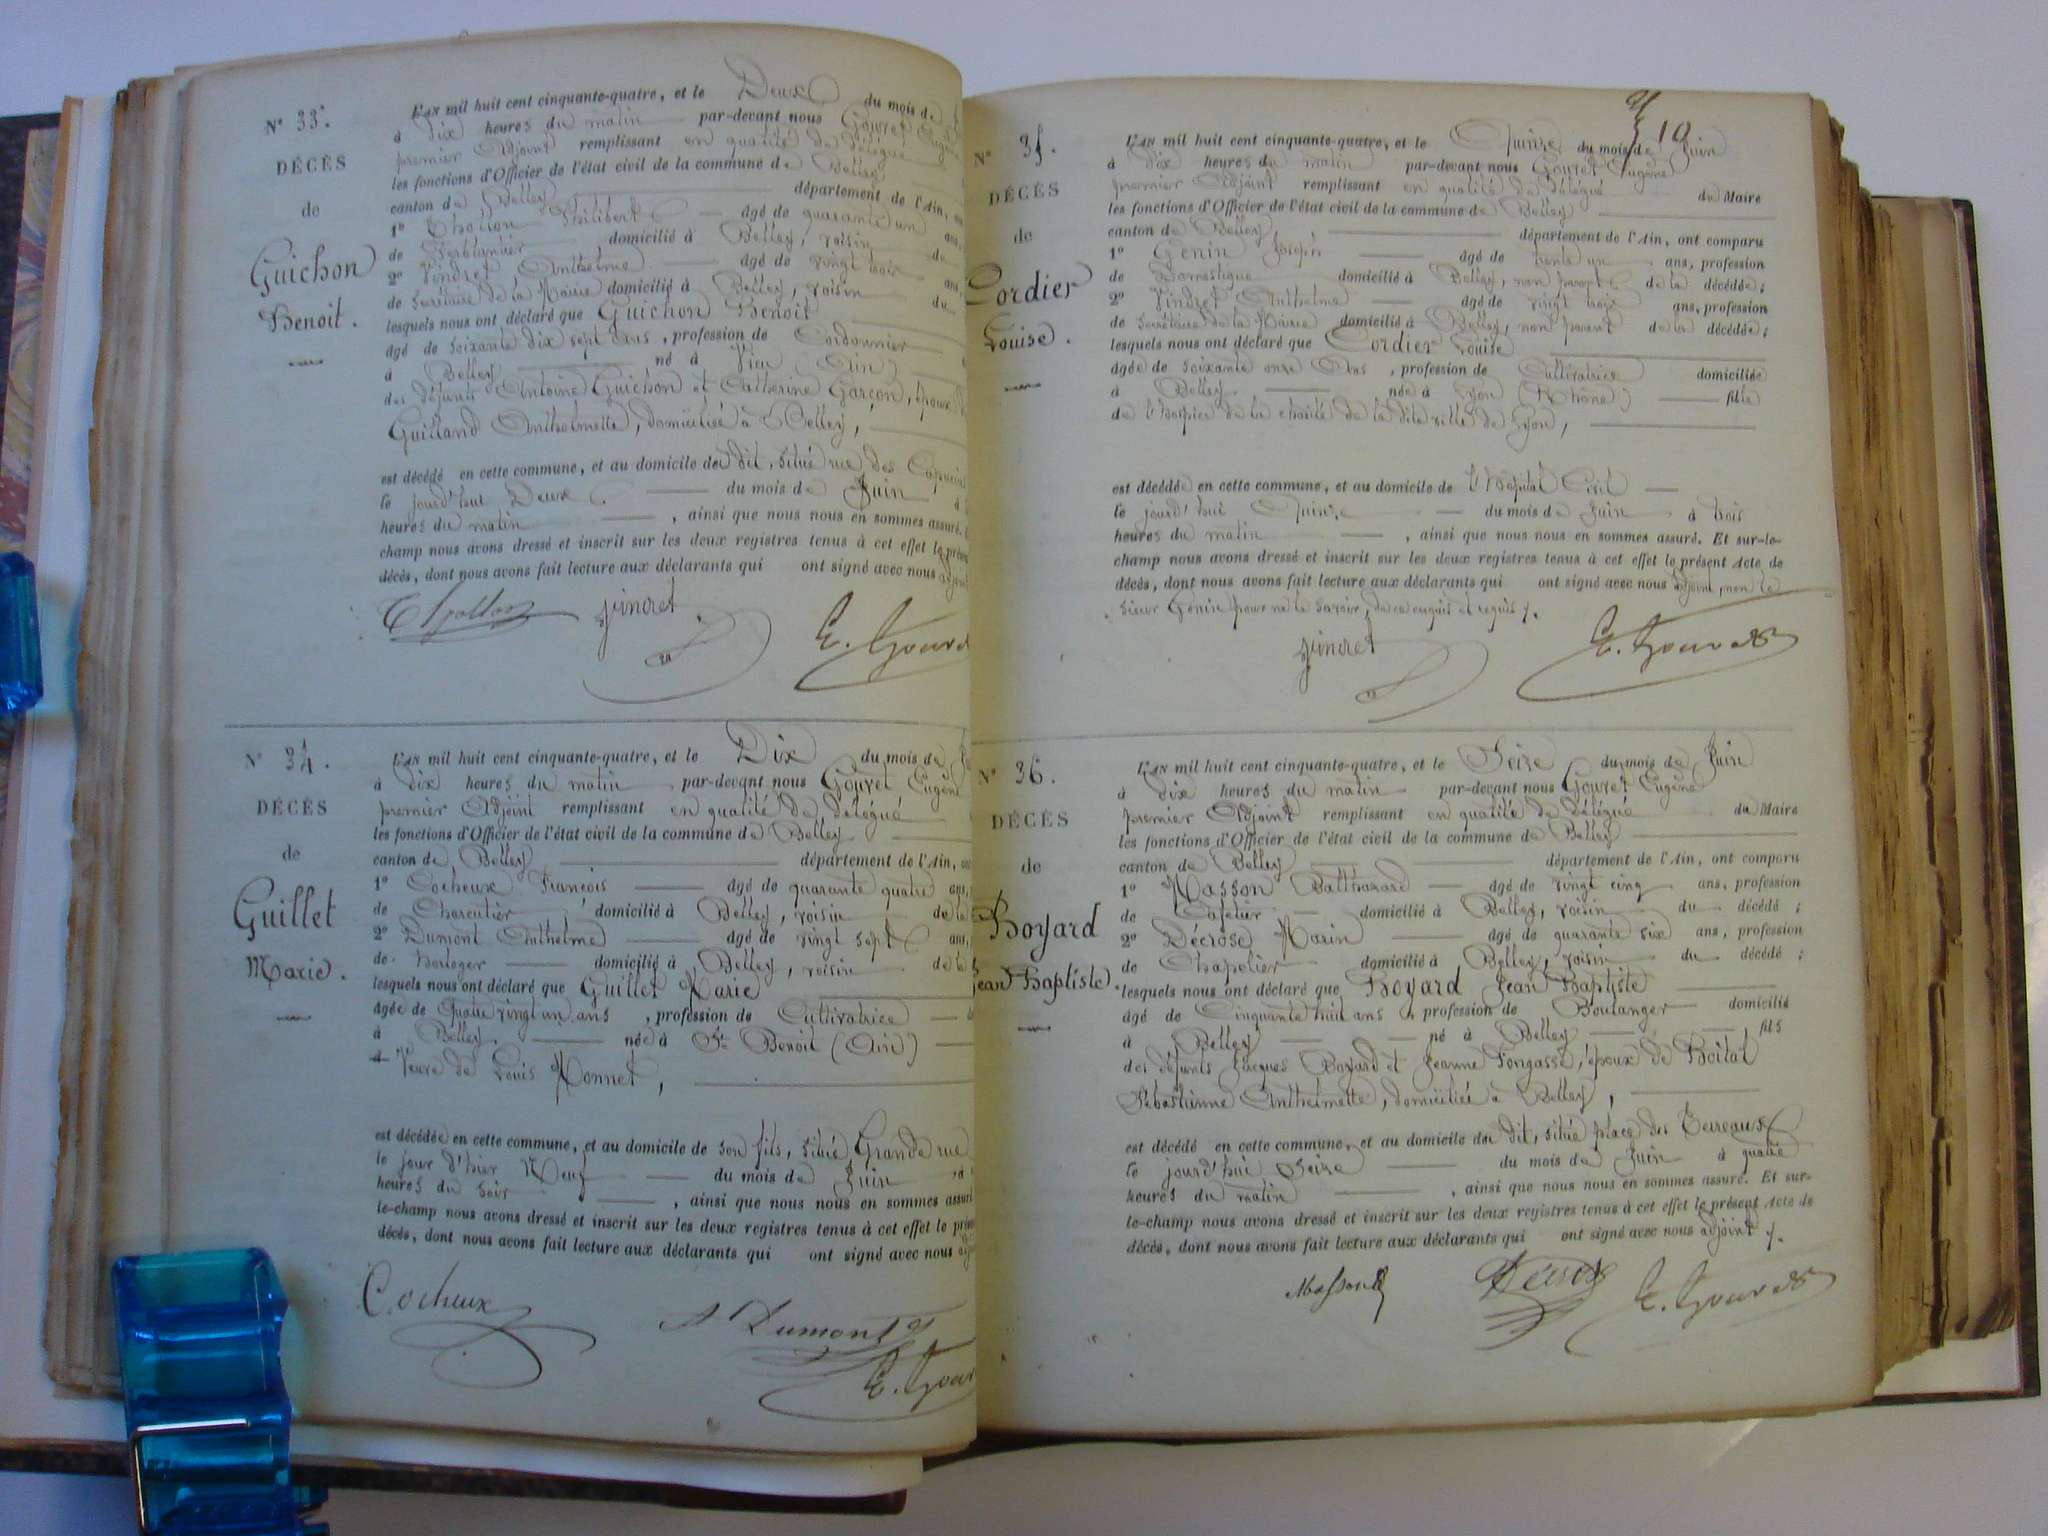 N° 33.
DÉCÈS
de
Guichon
Benoit.
L'AN mil huit cent cinquante-quatre, et le Deux du mois de
à dix heures du matin par-devant nous Gouvet Eugène
premier Adjoint remplissant en qualité de délégué
les fonctions d'Officier de l'état civil de la commune de Belley
canton de Belley département de l'Ain,
1° Thollon Philibert âgé de quarante un ans,
de Ferblantier domicilié à Belley, voisin
2° Vindret Anthelme âgé de vingt trois ans,
de Secrétaire de la Mairie domicilié à Belley, voisin du
lesquels nous ont déclaré que Guichon Benoit
âgé de soixante dix sept ans, profession de Cordonnier
à Belley né à Vieu (Ain)
des défunts Antoine Guichon et Catherine Garçon, époux
Guilland Anthelmette, domiciliée à Belley,
est décédé en cette commune, et au domicile du dit, situé rue des Capucins
le jourd'hui Deux du mois de Juin à
heures du matin, ainsi que nous nous en sommes assuré.
champ nous avons dressé et inscrit sur les deux registres tenus à cet effet le présent
décès, dont nous avons fait lecture aux déclarants qui ont signé avec nous adjoint
Thollon Vindret E. Gouvet
N° 34.
DÉCÈS
de
Guillet
Marie.
L'AN mil huit cent cinquante-quatre, et le Dix du mois de
à dix heures du matin par-devant nous Gouvet Eugène
premier Adjoint remplissant en qualité de délégué
les fonctions d'Officier de l'état civil de la commune de Belley
canton de Belley département de l'Ain,
1° Cocheux François âgé de quarante quatre ans,
de Charcutier, domicilié à Belley, voisin de la
2° Dumont Anthelme âgé de vingt sept ans,
de horloger domicilié à Belley, voisin de la
lesquels nous ont déclaré que Guillet Marie
âgée de Quatre vingt un ans, profession de Cultivatrice
à Belley. née à St Benoit (Ain)
Veuve de Louis Monnet,
est décédée en cette commune, et au domicile de son fils, situé Grande rue
le jour d'hier Neuf du mois de Juin à
heures du soir, ainsi que nous nous en sommes assuré
le-champ nous avons dressé et inscrit sur les deux registres tenus à cet effet le présent
décès, dont nous avons fait lecture aux déclarants qui ont signé avec nous
Cocheux
A Dumont
E. Gouvet
10
N° 35.
DÉCÈS
de
Cordier
Louise.
L'AN mil huit cent cinquante-quatre, et le Quinze du mois de Juin
à dix heures du matin par-devant nous Gouvet Eugène
premier Adjoint remplissant en qualité de délégué du Maire
les fonctions d'Officier de l'état civil de la commune de Belley
canton de Belley, département de l'Ain, ont comparu
1° Genin Joseph âgé de trente un ans, profession
de Domestique domicilié à Belley, non parent de la décédée;
2° Vindret Anthelme âgé de vingt trois ans, profession
de Secrétaire de la Mairie domicilié à Belley, non parent de la décédée;
lesquels nous ont déclaré que Cordier Louise
âgée de soixante onze Ans, profession de Cultivatrice domiciliée
à Belley née à Lyon (Rhône) fille
de l'hospice de la charité de la dite ville de Lyon,
est décédée en cette commune, et au domicile de l'hôpital Civil
le jourd'hui Quinze du mois de Juin à trois
heures du matin, ainsi que nous nous en sommes assuré. Et sur-le-
champ nous avons dressé et inscrit sur les deux registres tenus à cet effet le présent Acte de
décès, dont nous avons fait lecture aux déclarants qui ont signé avec nous adjoint, non le
sieur Genin pour ne le savoir, de ce enquis et requis.
Vindret E. Gouvet
N° 36.
DÉCÈS
de
Boyard
Jean Baptiste.
L'AN mil huit cent cinquante-quatre, et le Seize du mois de Juin
à dix heures du matin par-devant nous Gouvet Eugène
premier Adjoint remplissant en qualité de délégué du Maire
les fonctions d'Officier de l'état civil de la commune de Belley
canton de Belley département de l'Ain, ont comparu
1° Masson Balthazard âgé de vingt cinq ans, profession
de Cafetier domicilié à Belley, voisin du décédé;
2° Décrose Marin âgé de quarante six ans, profession
de Chapelier domicilié à Belley, voisin du décédé;
lesquels nous ont déclaré que Boyard Jean Baptiste
âgé de Cinquante huit ans, profession de Boulanger domicilié
à Belley né à Belley fils
des défunts Jacques Boyard et Jeanne Fongasse, époux de Boital
Sébastienne Anthelmette, domiciliée à Belley,
est décédé en cette commune, et au domicile du dit, situé place des Terreaux
le jourd'hui Seize du mois de Juin à quatre
heures du matin, ainsi que nous nous en sommes assuré. Et sur-
le-champ nous avons dressé et inscrit sur les deux registres tenus à cet effet le présent Acte de
décès, dont nous avons fait lecture aux déclarants qui ont signé avec nous adjoint.
Masson E. Gouvet